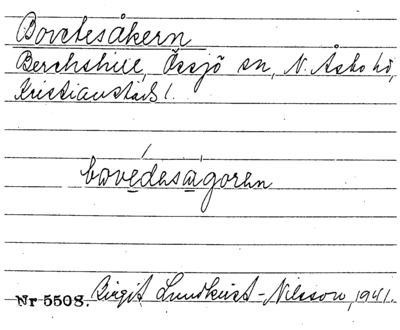 Bovetesåkern
Berchshill, Össjö sn, N. Åsbo hd,
Kristianstads l.
bovedesagoren
Nr 5508. Birgit Lundkvist-Nilsson, 1941.